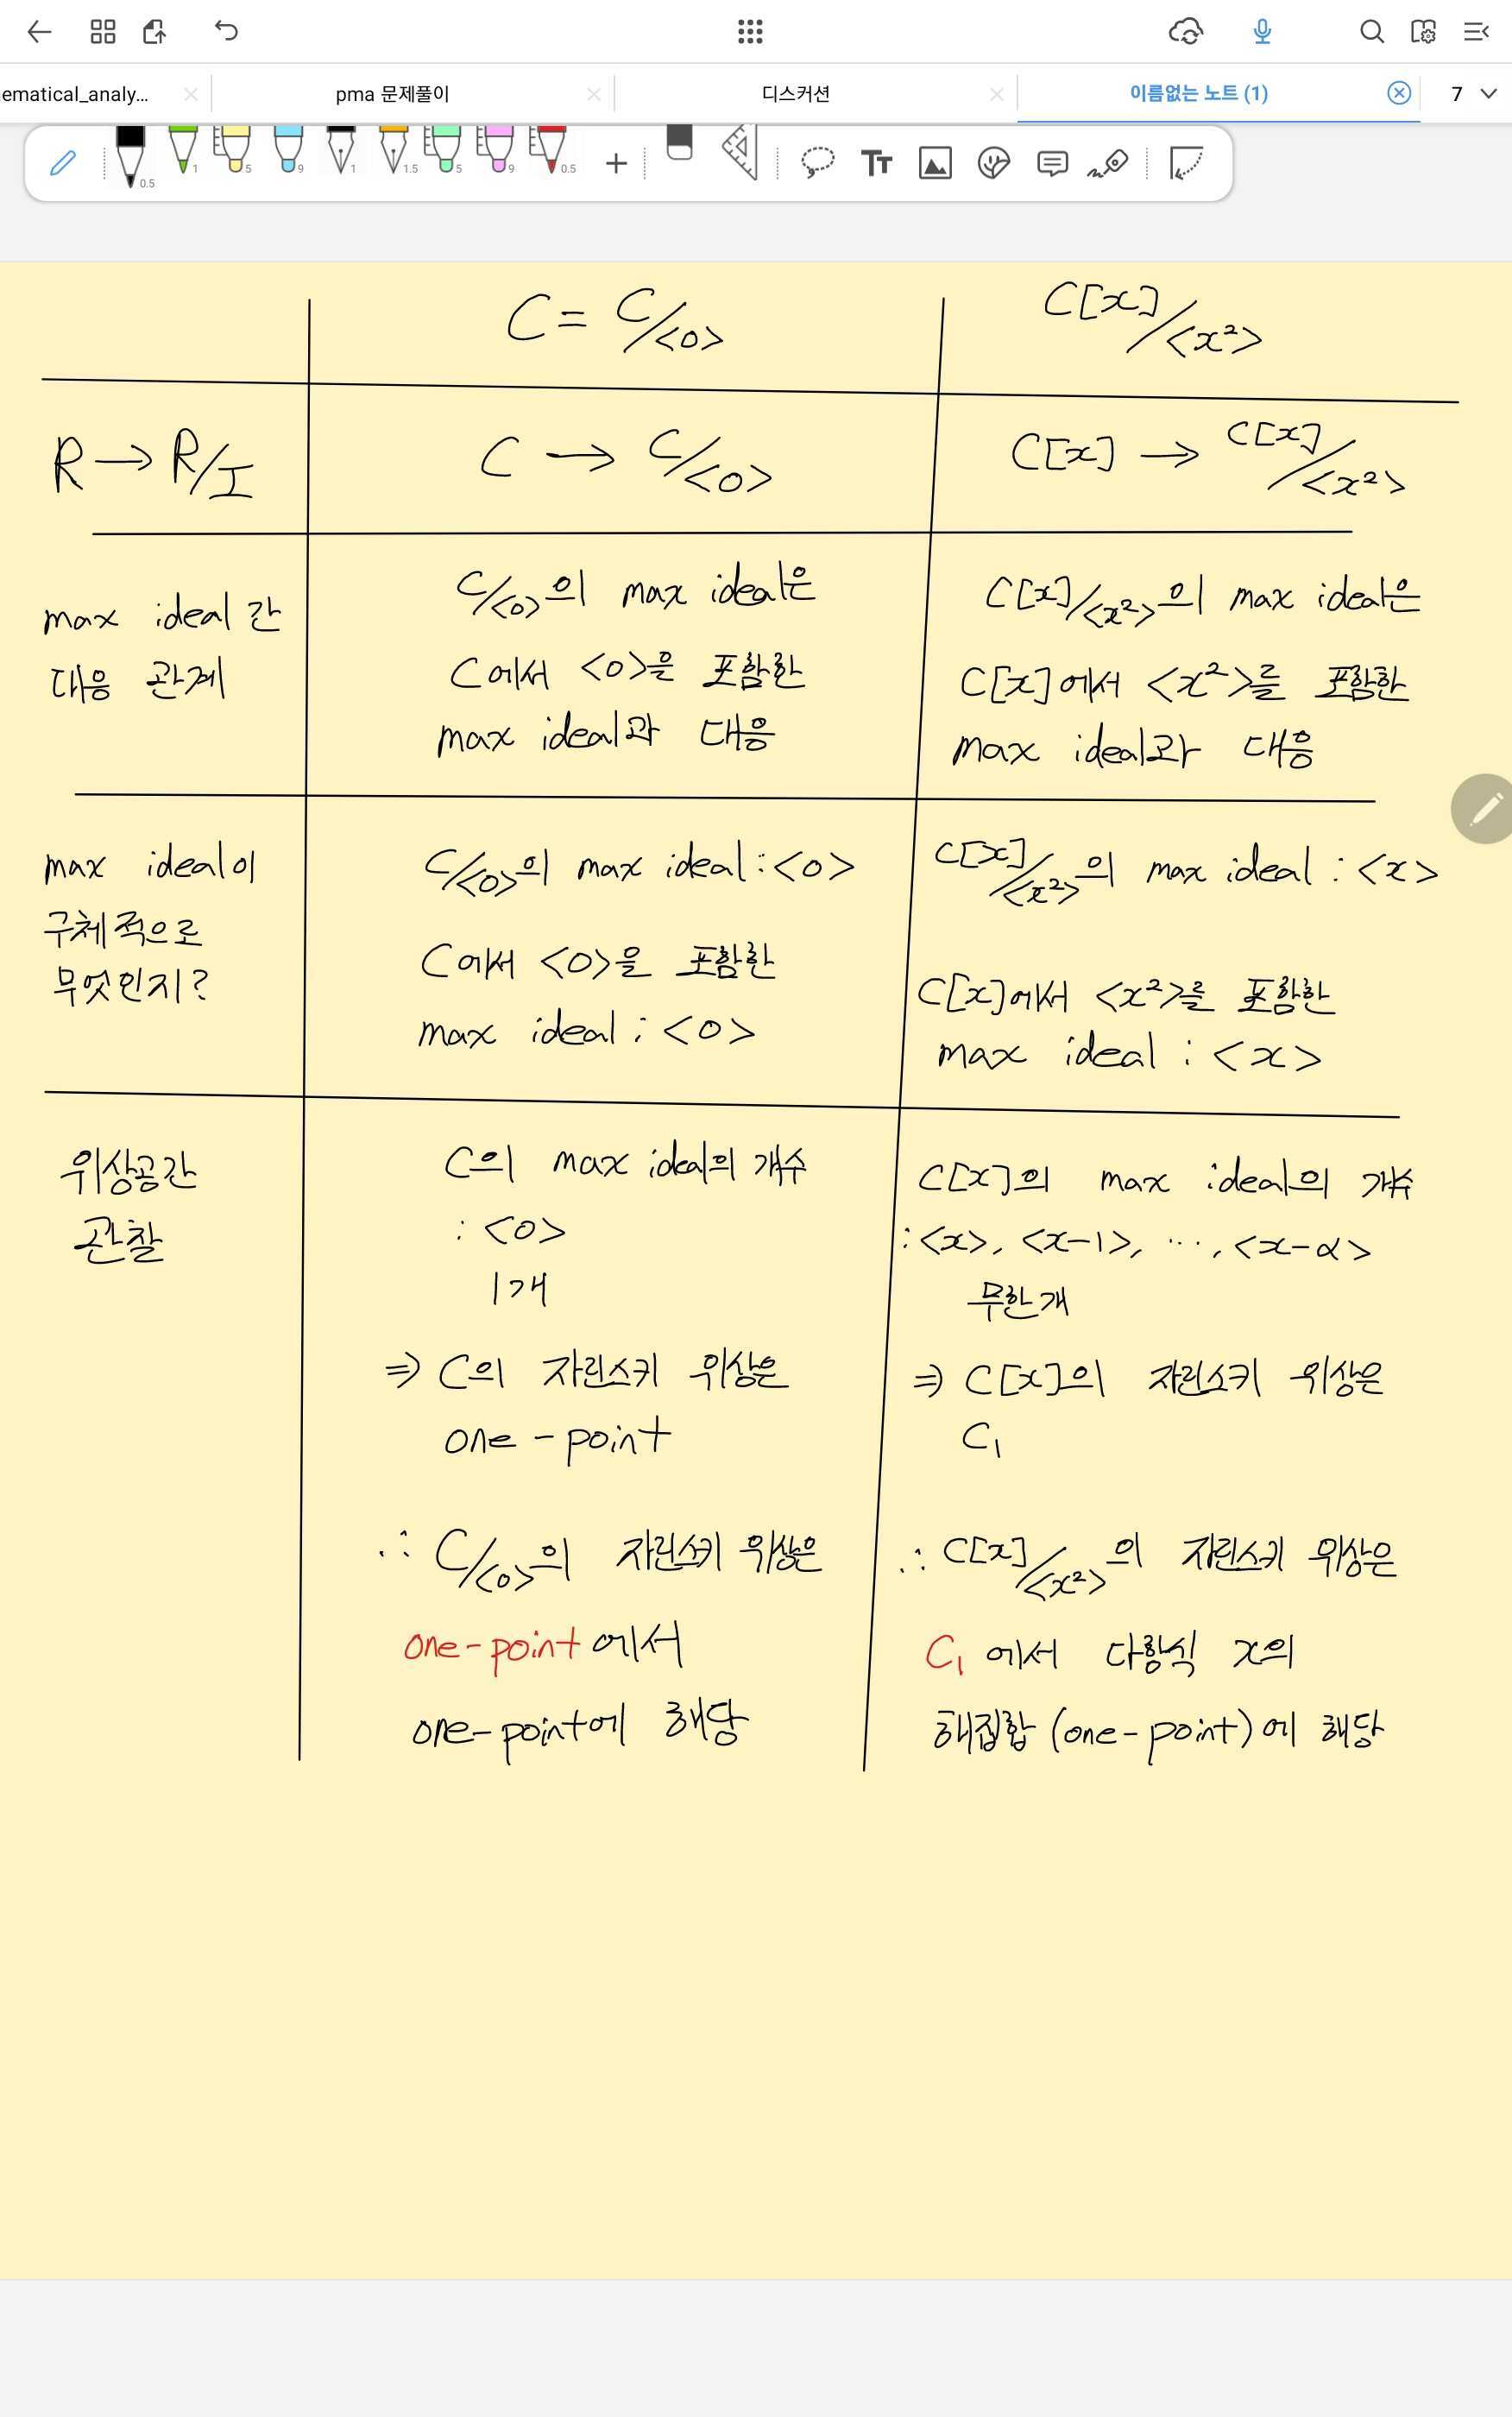 ematical_analy...
pma 문제풀이
디스커션
이름없는 노트 (1)
7
0.5
1
5
9
1
1.5
5
9
0.5
Tт
C = C/<0>
C[x]/<x²>
R → R/I
C → C/<0>
C[x] → C[x]/<x²>
max ideal 간
대응 관계
C/<0>의 max ideal은
C에서 <0>을 포함한
max ideal과 대응
C[x]/<x²>의 max ideal은
C[x]에서 <x²>를 포함한
max ideal과 대응
max ideal이
구체적으로
무엇인지?
C/<0>의 max ideal : <0>
C에서 <0>을 포함한
max ideal : <0>
C[x]/<x²>의 max ideal : <x>
C[x]에서 <x²>를 포함한
max ideal : <x>
위상공간
관찰
C의 max ideal의 개수
: <0>
1개
⇒ C의 자린스키 위상은
one-point
∴ C/<0>의 자린스키 위상은
one-point에서
one-point에 해당
C[x]의 max ideal의 개수
: <x>, <x-1>, ..., <x-α>
무한개
⇒ C[x]의 자린스키 위상은
C₁
∴ C[x]/<x²>의 자린스키 위상은
C₁에서 다항식 x의
해집합 (one-point)에 해당